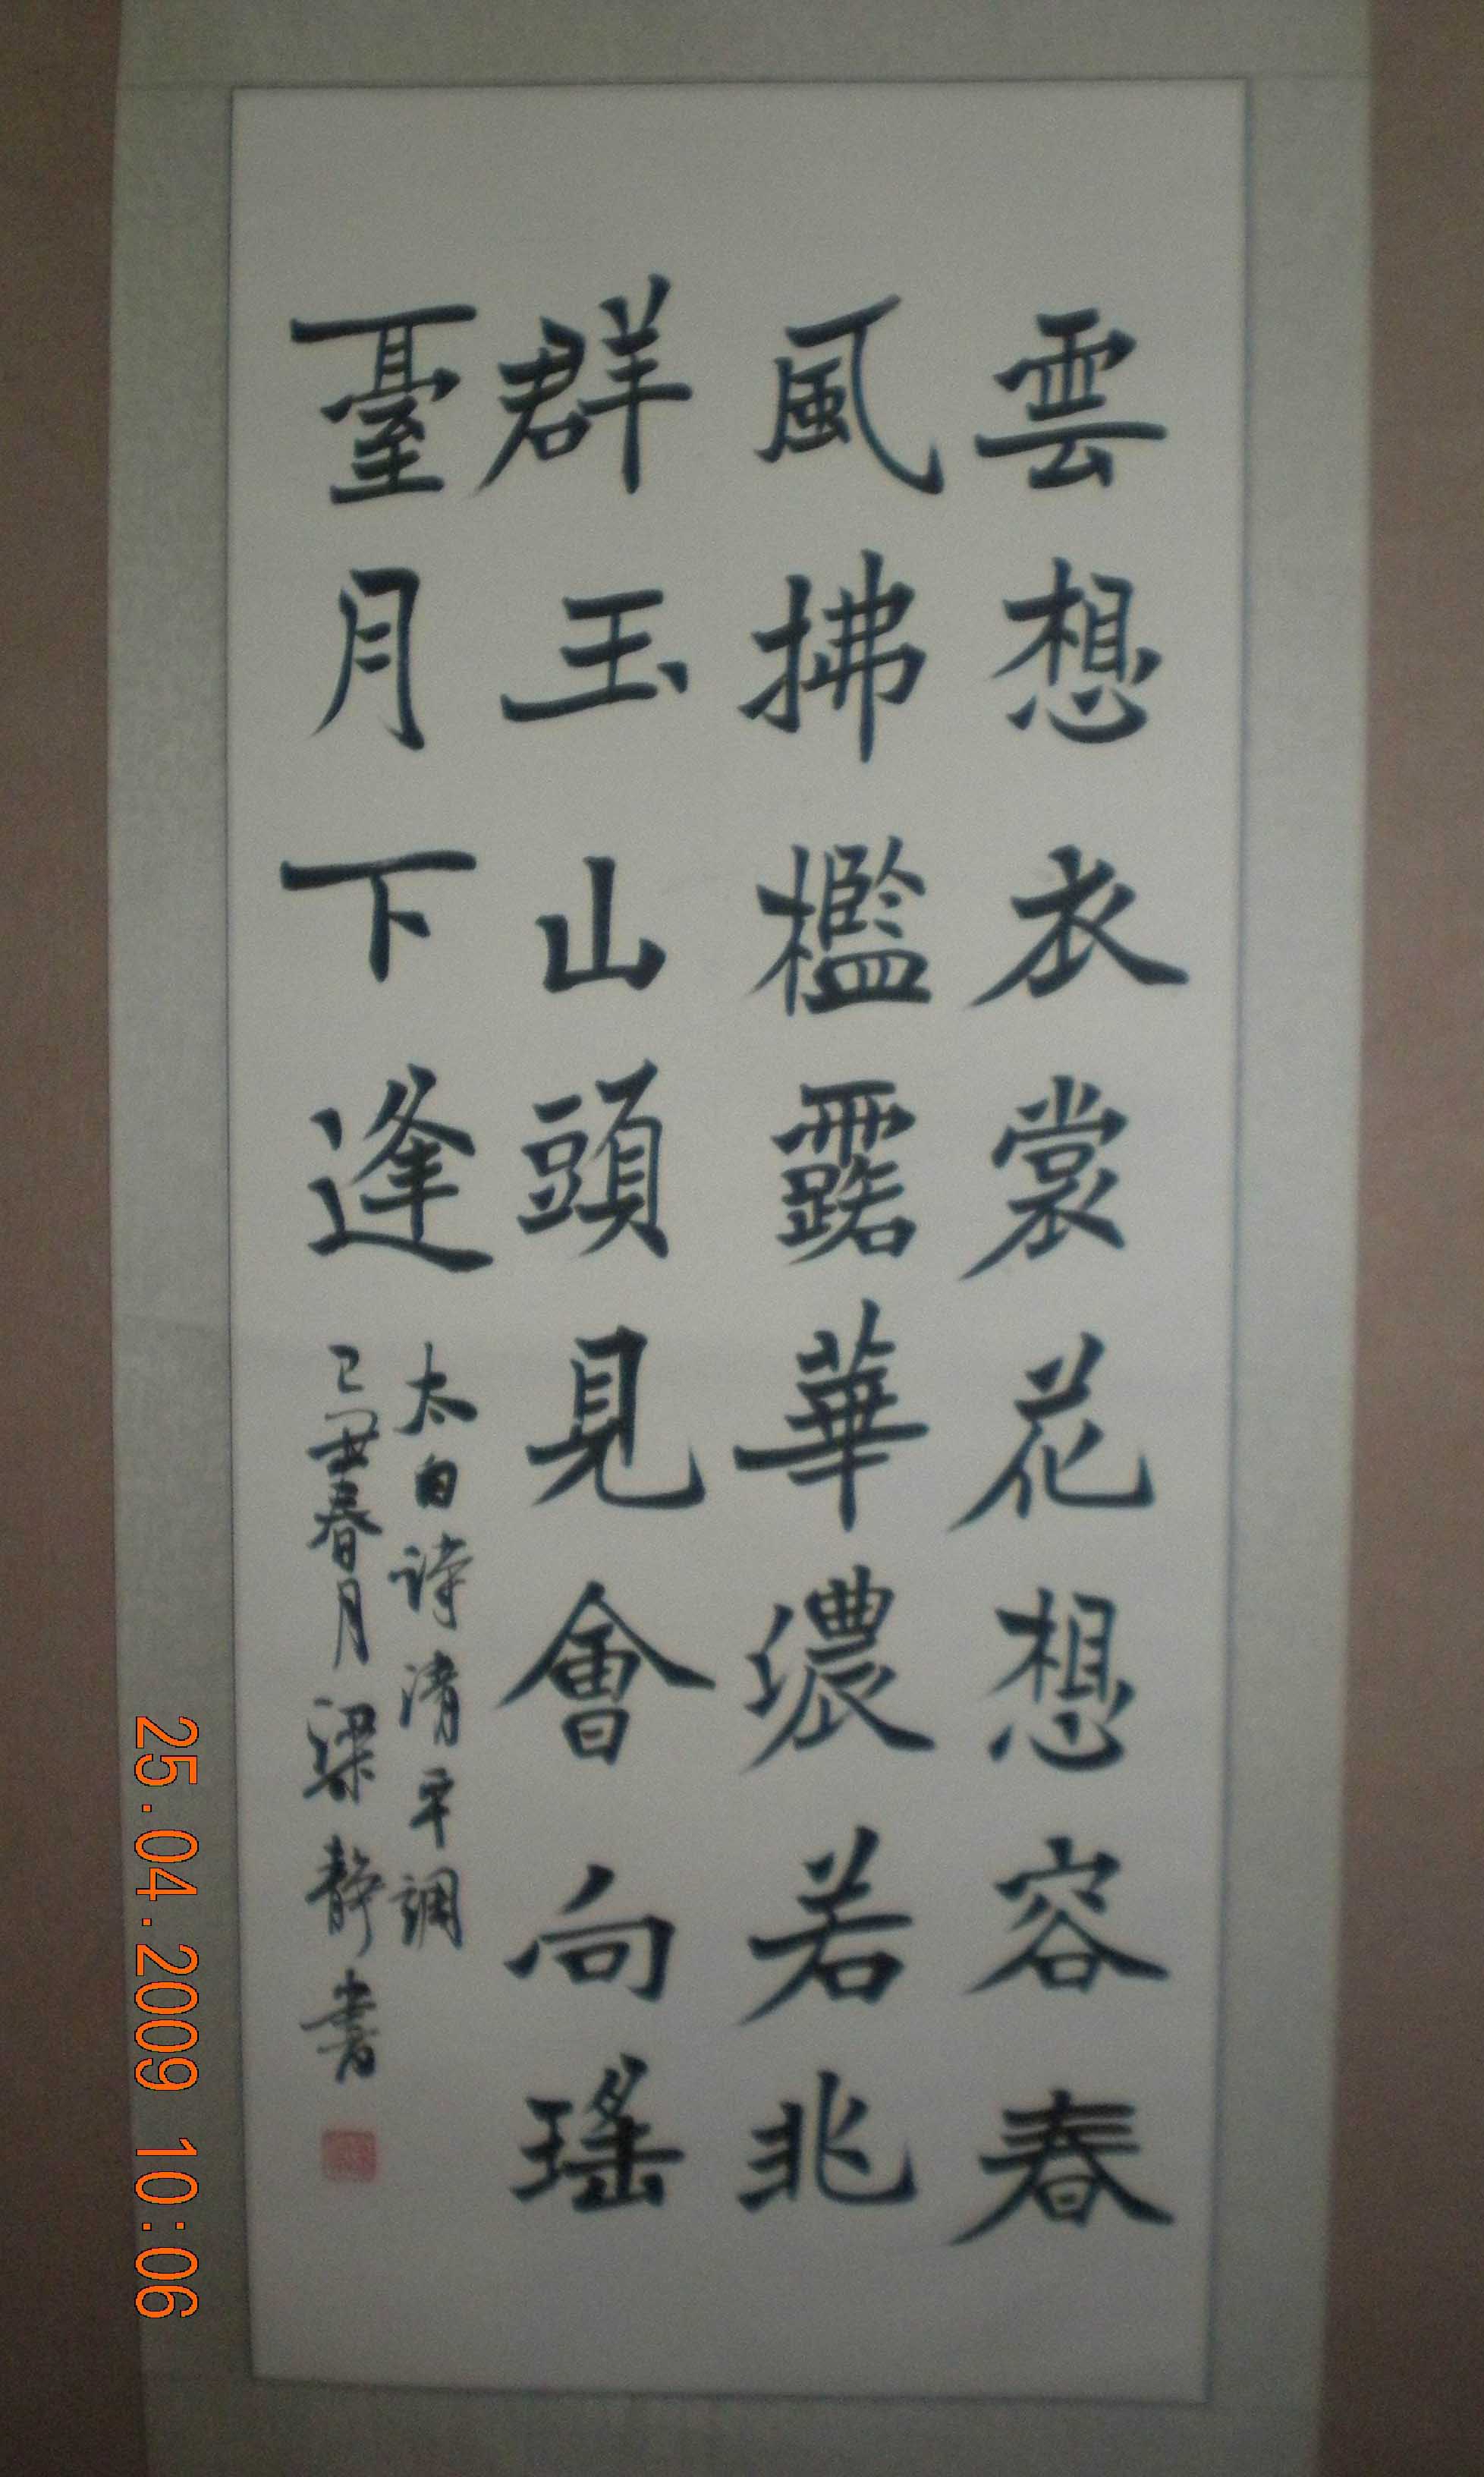 雲想衣裳花想容春
風拂檻露華濃若兆
群玉山頭見會向瑤
臺月下逢
太白诗清平調
己丑春月梁静書
25.04.2009 10:06